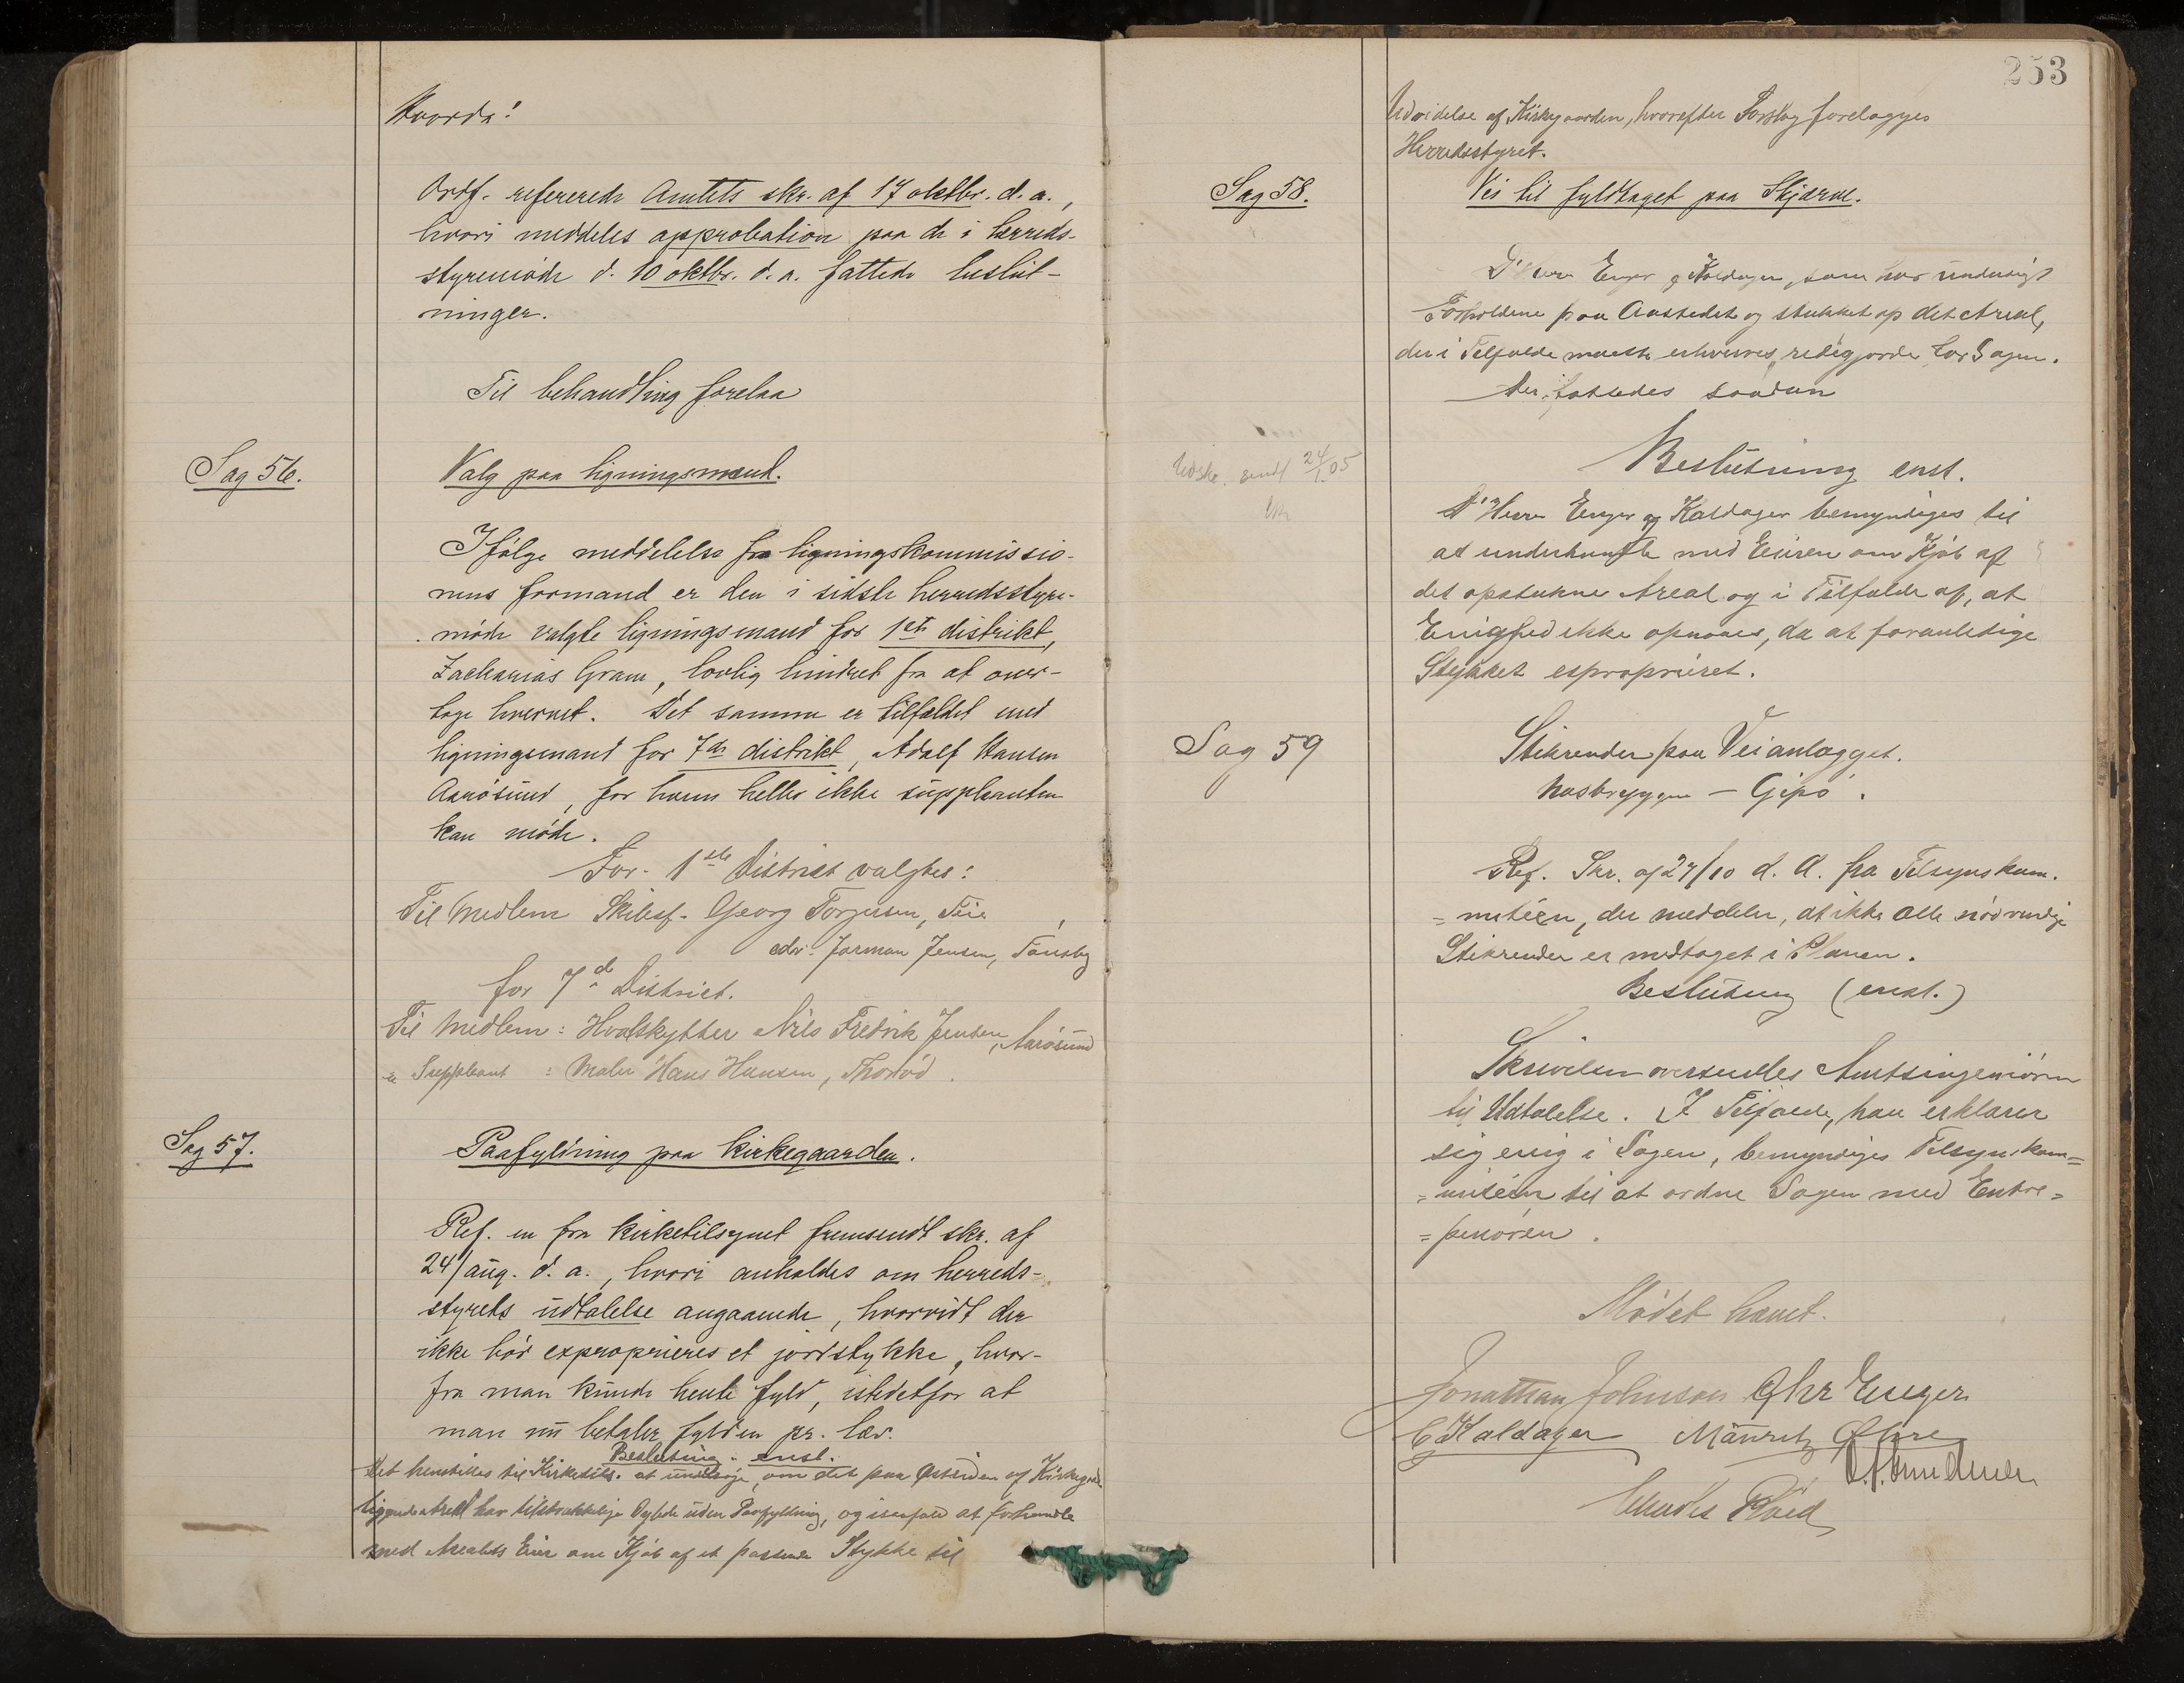 Ordf. refererede Amtets skr. af 17 oktbr. d. a.,
hvori meddeles approbation paa de i herreds-
styremøde d. 10 oktbr. d. a. fattede beslut-
ninger.
Til behandling forelaa
Sag 56.
Valg paa ligningsmænd.
Ifølge meddelelse fra ligningskommissio-
nens formand er den i sidste herredsstyre-
møde valgte ligningsmand for 1ste distrikt,
Zacharias Gram, lovlig hindret fra at over-
tage hvervet. Det samme er tilfældet med
ligningsmand for 7de distrikt, Adolf Hansen
Aarøsund, for hvem heller ikke suppleanten
kan møde.
For 1ste District valgtes:
Til Medlem Skibsf. Georg Torgersen, Teie
Jorman Jensen, Tønsby
for 7de District.
Til Medlem: Hvalskytter Nils Fredrik Jensen, Aarøsund
" Suppleant: Maler Hans Hansen, Thorød.
Sag 57.
Paafyldning paa kirkegaarden.
Ref. en fra kirketilsynet fremsendt skr. af
24/aug. d. a., hvori anholdes om herreds-
styrets udtalelse angaaende, hvorvidt der
ikke bør exproprieres et jordstykke, hvor-
fra man kunde hente fyld, istedetfor at
man nu betaler fylden pr. læs.
Beslutning. enst.
Det henstilles til Kirketils. at undersøge, om det paa Østsiden af Kirkegrd.
liggende Areal har tilstrækkelige Dybde uden Paafyldning, og isaafald at forhandle
med Arealets Eier om Kjøb af et passende Stykke til
253
Udvidelse af Kirkegaarden, hvorefter Forslag forelægges
Herredsstyret.
Sag 58.
Vei til fyldtaget paa Skjærve.
D'Herr Enger og Kaldager, som har undersøgt
Forholdene paa Aastedet og stukket op det Areal,
der i Tilfælde maatte erhverves, redegjorde for Sagen.
Der fattedes saadan
Udskr. sendt 24/1.05
Beslutning enst.
D'Herrer Enger og Kaldager bemyndiges til
at underhandle med Eieren om Kjøb af
det opstukne Areal og i Tilfælde af, at
Enighed ikke opnaaes, da at foranledige
Stykket exproprieret.
Sag 59
Stikrender paa Veianlægget.
Næsbryggen – Gipø.
Ref. Skr. af 27/10 d. A. fra Tilsynskom-
= miteen, der meddeler, at ikke alle nødvendige
Stikrender er medtaget i Planen.
Beslutning (enst.)
Skrivelsen oversendes Amtsingeniøren
til Udtalelse. I Tilfælde, han erklærer
sig enig i Sagen, bemyndiges Tilsynskom=
= miteen til at ordne Sagen med Entre=
= penøren.
Mødet hævet.
Jonathan Johnson Chr Enger
C Kaldager Mauritz Øhre
Røed